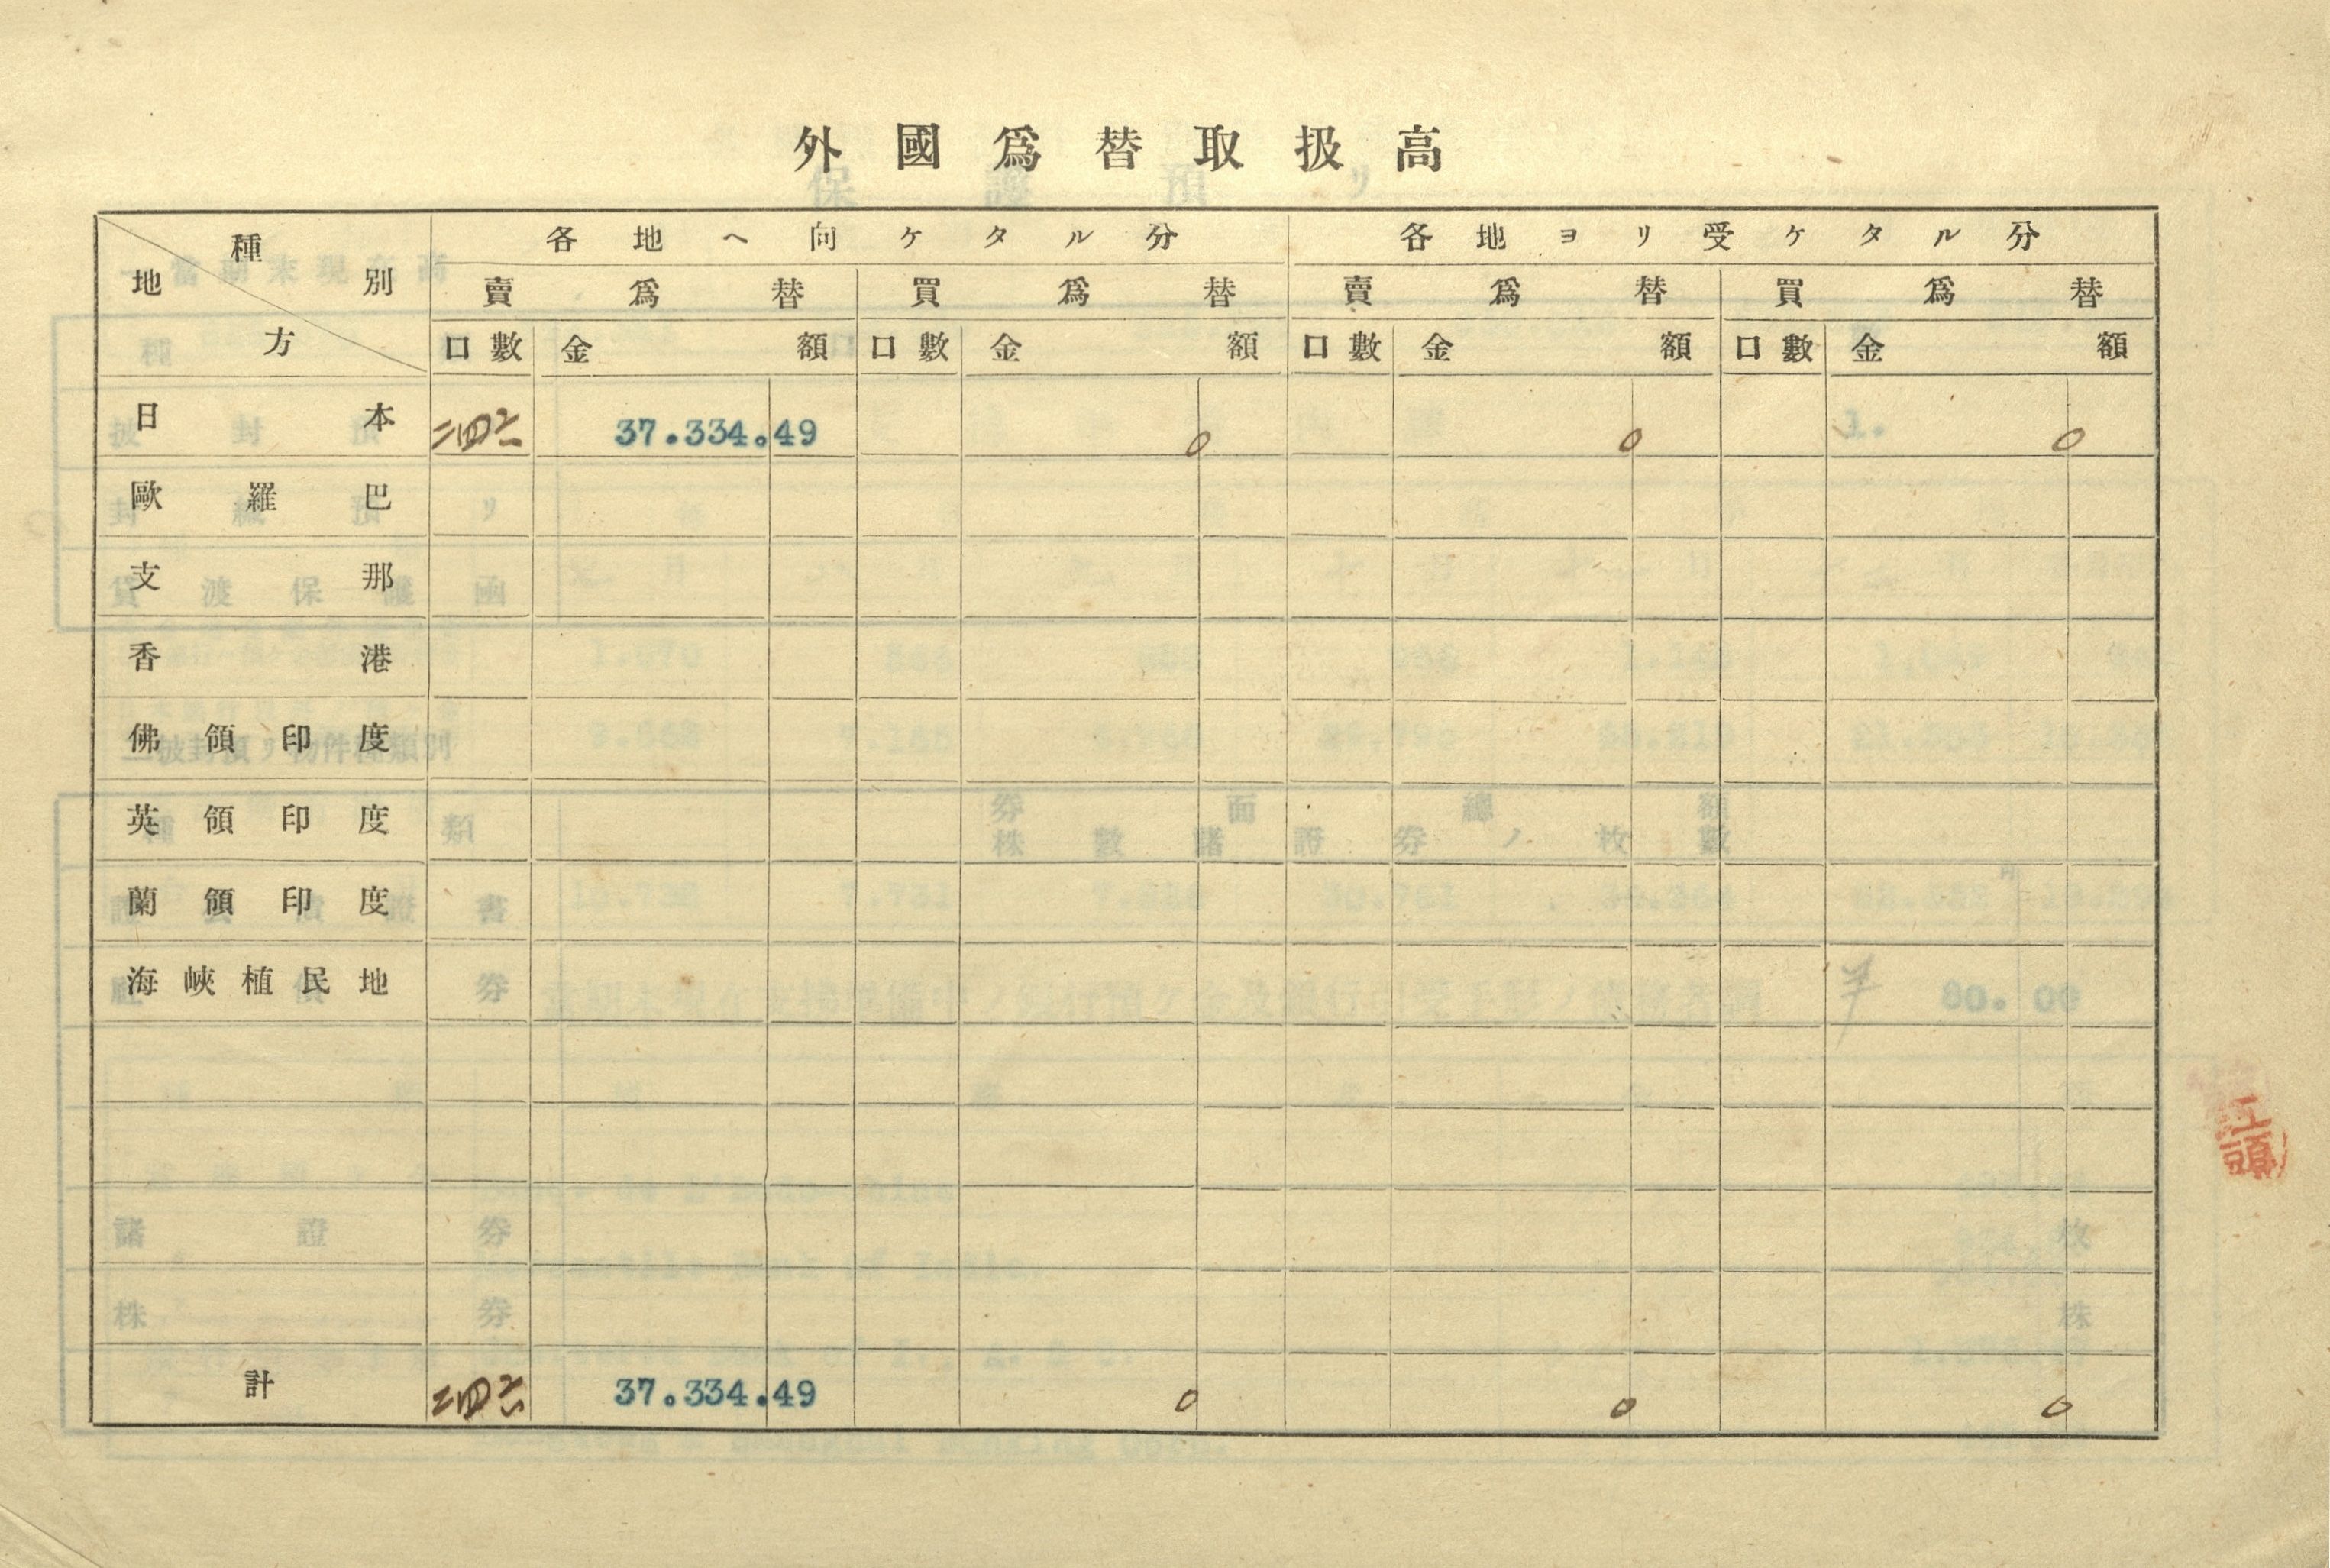 外國爲替取扱高
種別
地方
各地ヘ向ケタル分 各地ヨリ受ケタル分
賣爲替 買爲替 賣爲替 買爲替
口數 金額 口數 金額 口數 金額 口數 金額
日本 二四六 37.334.49 0 0 0
歐羅巴
支那
香港
佛領印度
英領印度
蘭領印度
海峽植民地
計 二四六 37.334.49 0 0 0